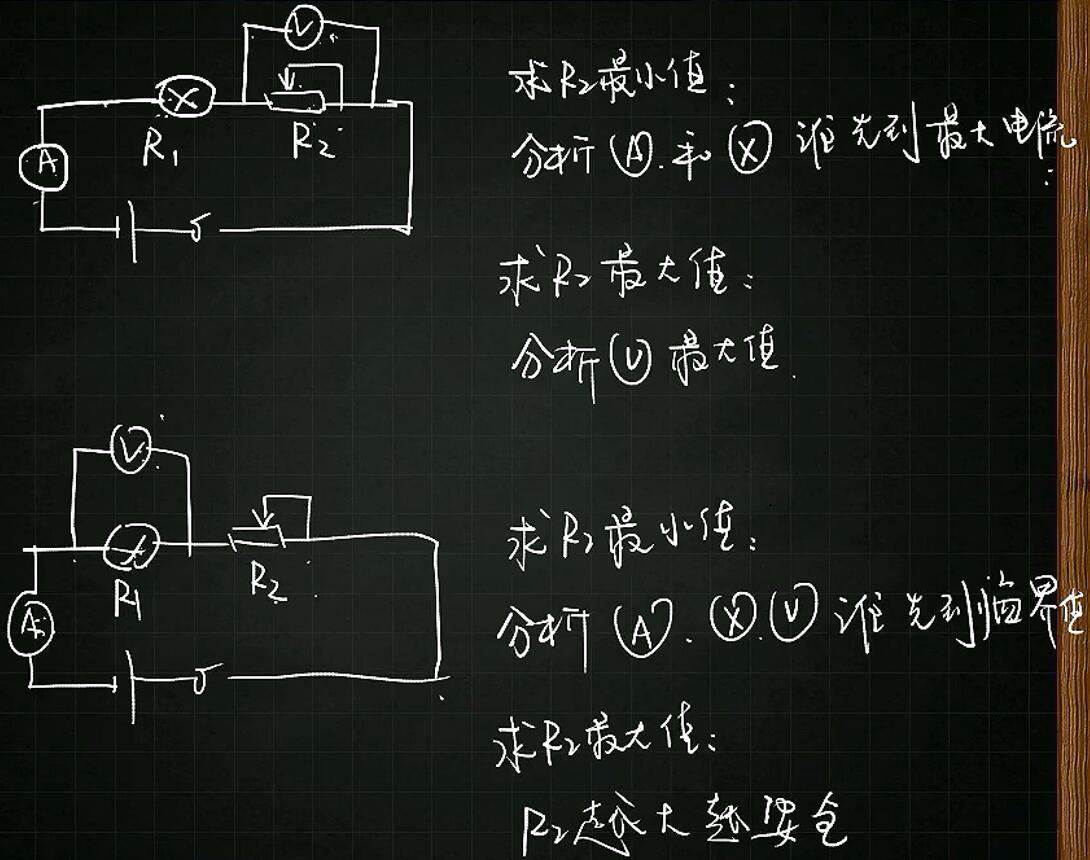 V
R₂
R₁
A
求R₂最小值：
分析Ⓐ和ⓧ谁先到最大电流
求R₂最大值：
分析Ⓥ最大值.
V
R₁
R₂
A
求R₂最小值：
分析Ⓐ、ⓧ.Ⓥ谁先到临界值
求R₂最大值：
R₂越大越安全